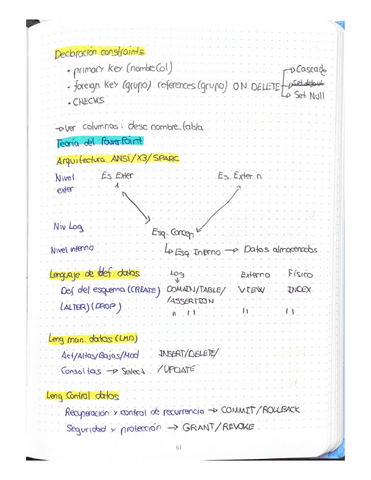 Declaración constraints
• primary key (nombeCol)
• foreign key (grupo) references (grupo) ON DELETE → Cascade
→ Set default
→ Set Null
• CHECKS
→ Ver columnas: desc nombre_tabla
Teoría del PowerPoint
Arquitectura ANSI/X3/SPARC
Nivel exter Es. Exter 1 Es. Exter. n
Niv Log Esq. Concep
Nivel interno ↳ Esq Interno → Datos almacenados
Lenguaje de def datos Log Externo Físico
Def del esquema (CREATE) DOMAIN/TABLE/ VIEW INDEX
(ALTER) (DROP) /ASSERTION
" " " "
Leng man. datos (LMD)
Act/Altas/Bajas/Mod INSERT/DELETE/
Consultas → Select /UPDATE
Leng Control datos
Recuperación y control de recurrencia → COMMIT/ROLLBACK
Seguridad y protección → GRANT/REVOKE
61